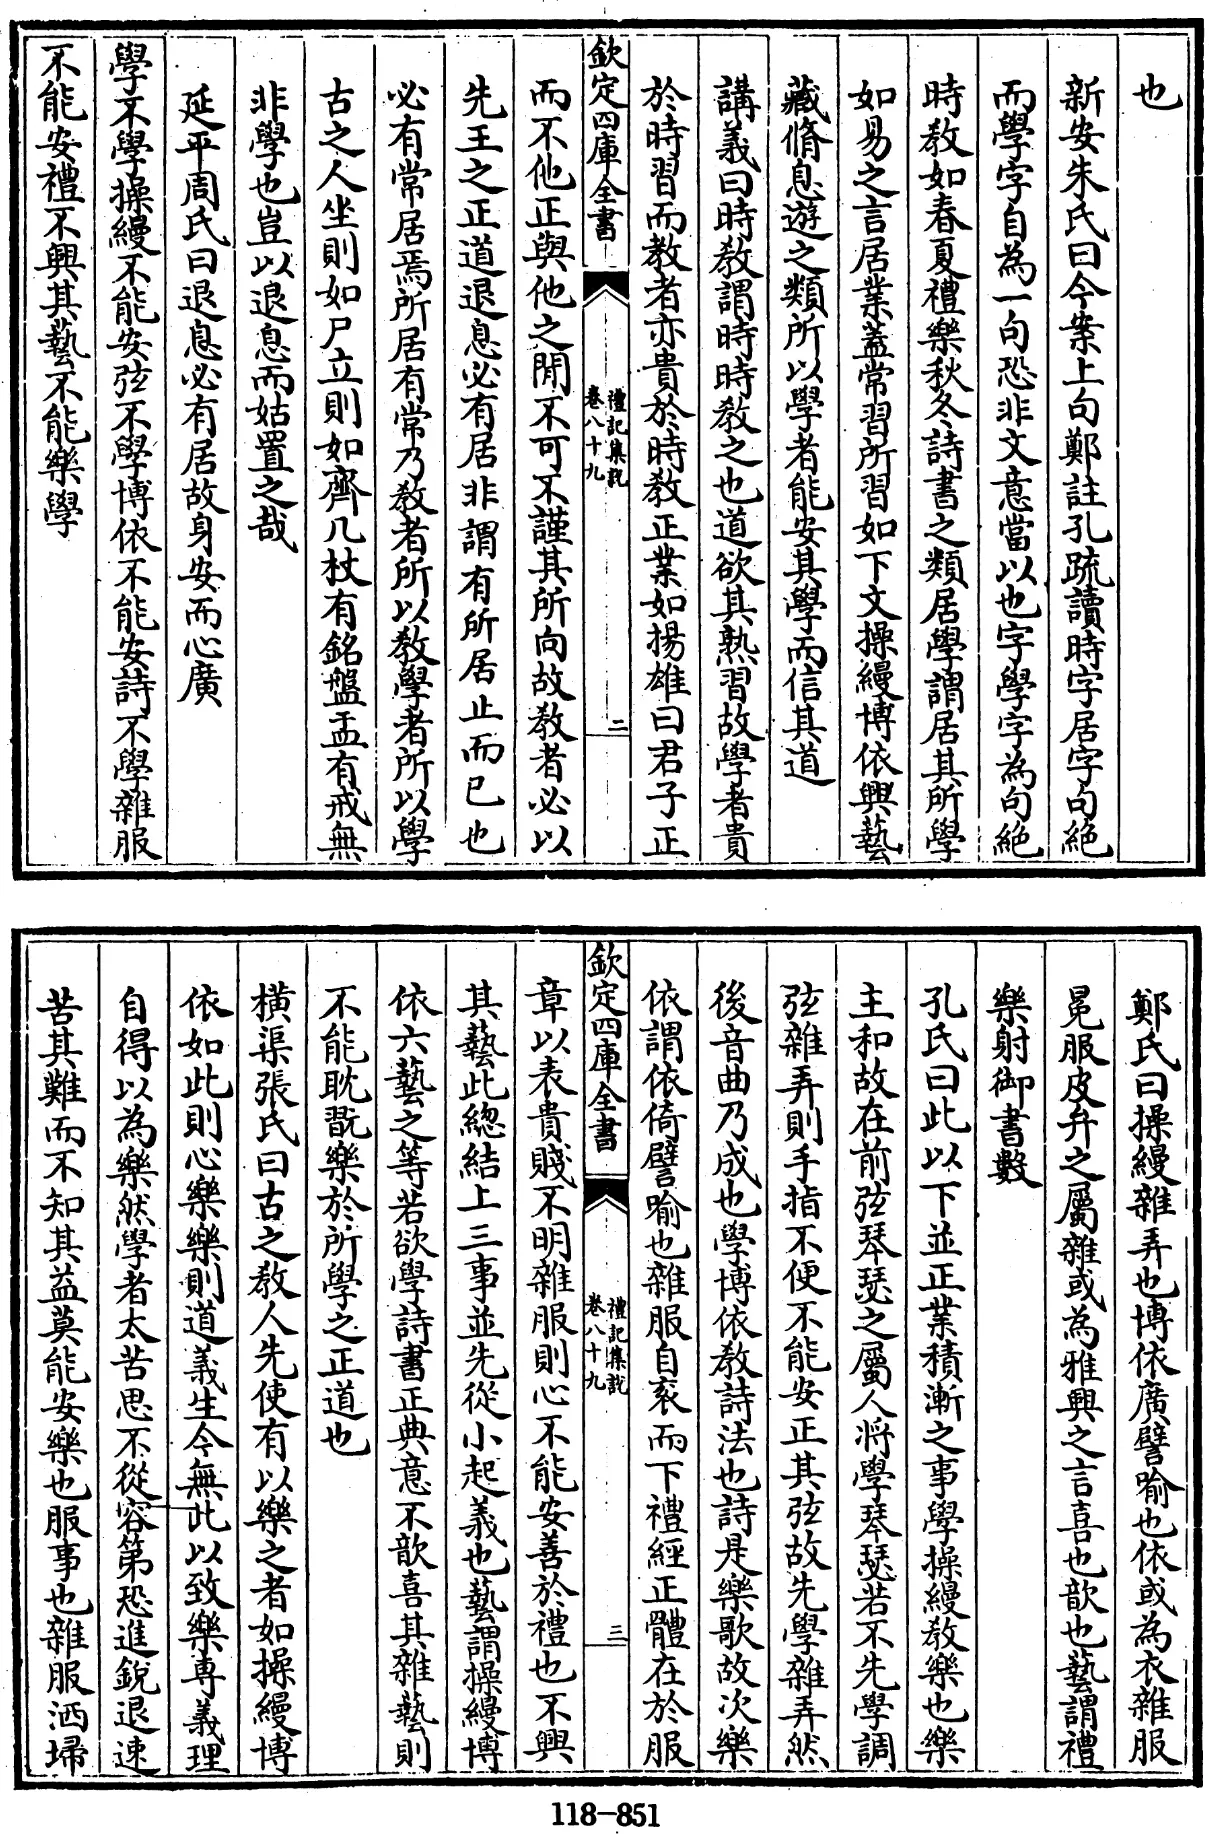 也
新安朱氏曰今案上句鄭註孔疏讀時字居字句絶
而學字自為一句恐非文意當以也字學字為句絶
時教如春夏禮樂秋冬詩書之類居學謂居其所學
如易之言居業蓋常習所習如下文操縵博依興藝
藏脩息遊之類所以學者能安其學而信其道
講義曰時教謂時時教之也道欲其熟習故學者貴
於時習而教者亦貴於時教正業如揚雄曰君子正
欽定四庫全書
禮記集說
卷八十九
二
而不他正與他之閒不可不謹其所向故教者必以
先王之正道退息必有居非謂有所居止而已也
必有常居焉所居有常乃教者所以教學者所以學
古之人坐則如尸立則如齊几杖有銘盤盂有戒無
非學也豈以退息而姑置之哉
延平周氏曰退息必有居故身安而心廣
學不學操縵不能安弦不學博依不能安詩不學雜服
不能安禮不興其藝不能樂學
鄭氏曰操縵雜弄也博依廣譬喻也依或為衣雜服
冕服皮弁之屬雜或為雅興之言喜也歆也藝謂禮
樂射御書數
孔氏曰此以下並正業積漸之事學操縵教樂也樂
主和故在前弦琴瑟之屬人將學琴瑟若不先學調
弦雜弄則手指不便不能安正其弦故先學雜弄然
後音曲乃成也學博依教詩法也詩是樂歌故次樂
依謂依倚譬喻也雜服自衮而下禮經正體在於服
欽定四庫全書
禮記集說
卷八十九
三
章以表貴賤不明雜服則心不能安善於禮也不興
其藝此總結上三事並先從小起義也藝謂操縵博
依六藝之等若欲學詩書正典意不歆喜其雜藝則
不能耽翫樂於所學之正道也
橫渠張氏曰古之教人先使有以樂之者如操縵博
依如此則心樂樂則道義生今無此以致樂専義理
自得以為樂然學者太苦思不從容第恐進銳退速
苦其難而不知其益莫能安樂也服事也雜服洒埽
118-851